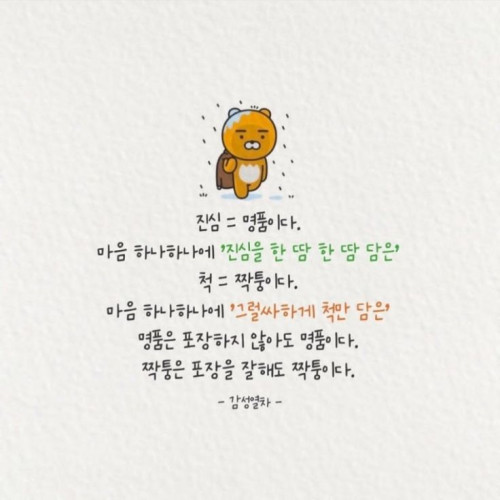 진심 = 명품이다.
마음 하나하나에 '진심을 한 땀 한 땀 담은'
척 = 짝퉁이다.
마음 하나하나에 '그럴싸하게 척만 담은'
명품은 포장하지 않아도 명품이다.
짝퉁은 포장을 잘해도 짝퉁이다.
- 감성열차 -